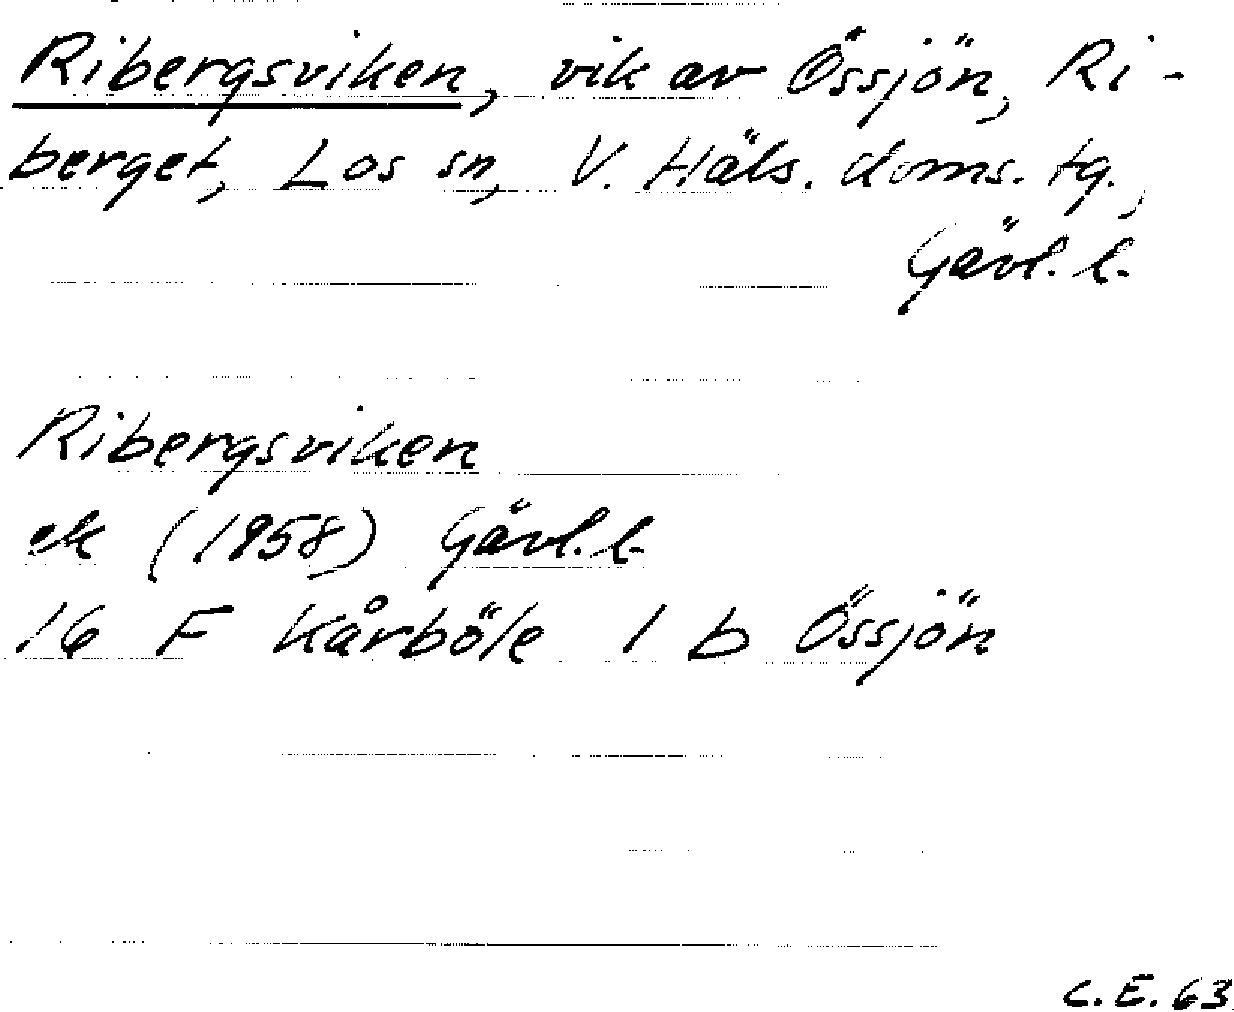 Ribergsviken, vik av Össjön, Ri-
berget, Los sn, V. Häls. doms. tg.,
Gävl. l.
Ribergsviken
ek (1958) Gävl. l.
16 F Kårböle 1 b Össjön
C.E. 63